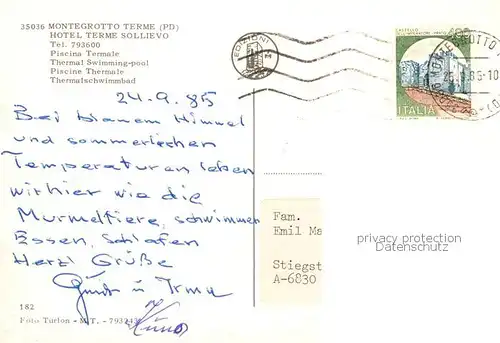 35036 MONTEGROTTO TERME (PD)
HOTEL TERME SOLLIEVO
Tel. 793600
Piscina Termale
Thermal Swimming-pool
Piscine Thermale
Thermalschwimmbad
24.9.85
Bei blauem Himmel
und sommerlichen
Temperaturen leben
wir hier wie die
Murmeltiere, schwimmen
Essen, Schlafen
Herzl Grüße
u Irma
182
Foto Turlon - M.T. - 793243
EDIZIONI
ITALIA
Fam.
Emil Ma
Stiegst
A-6830
privacy protection
Datenschutz